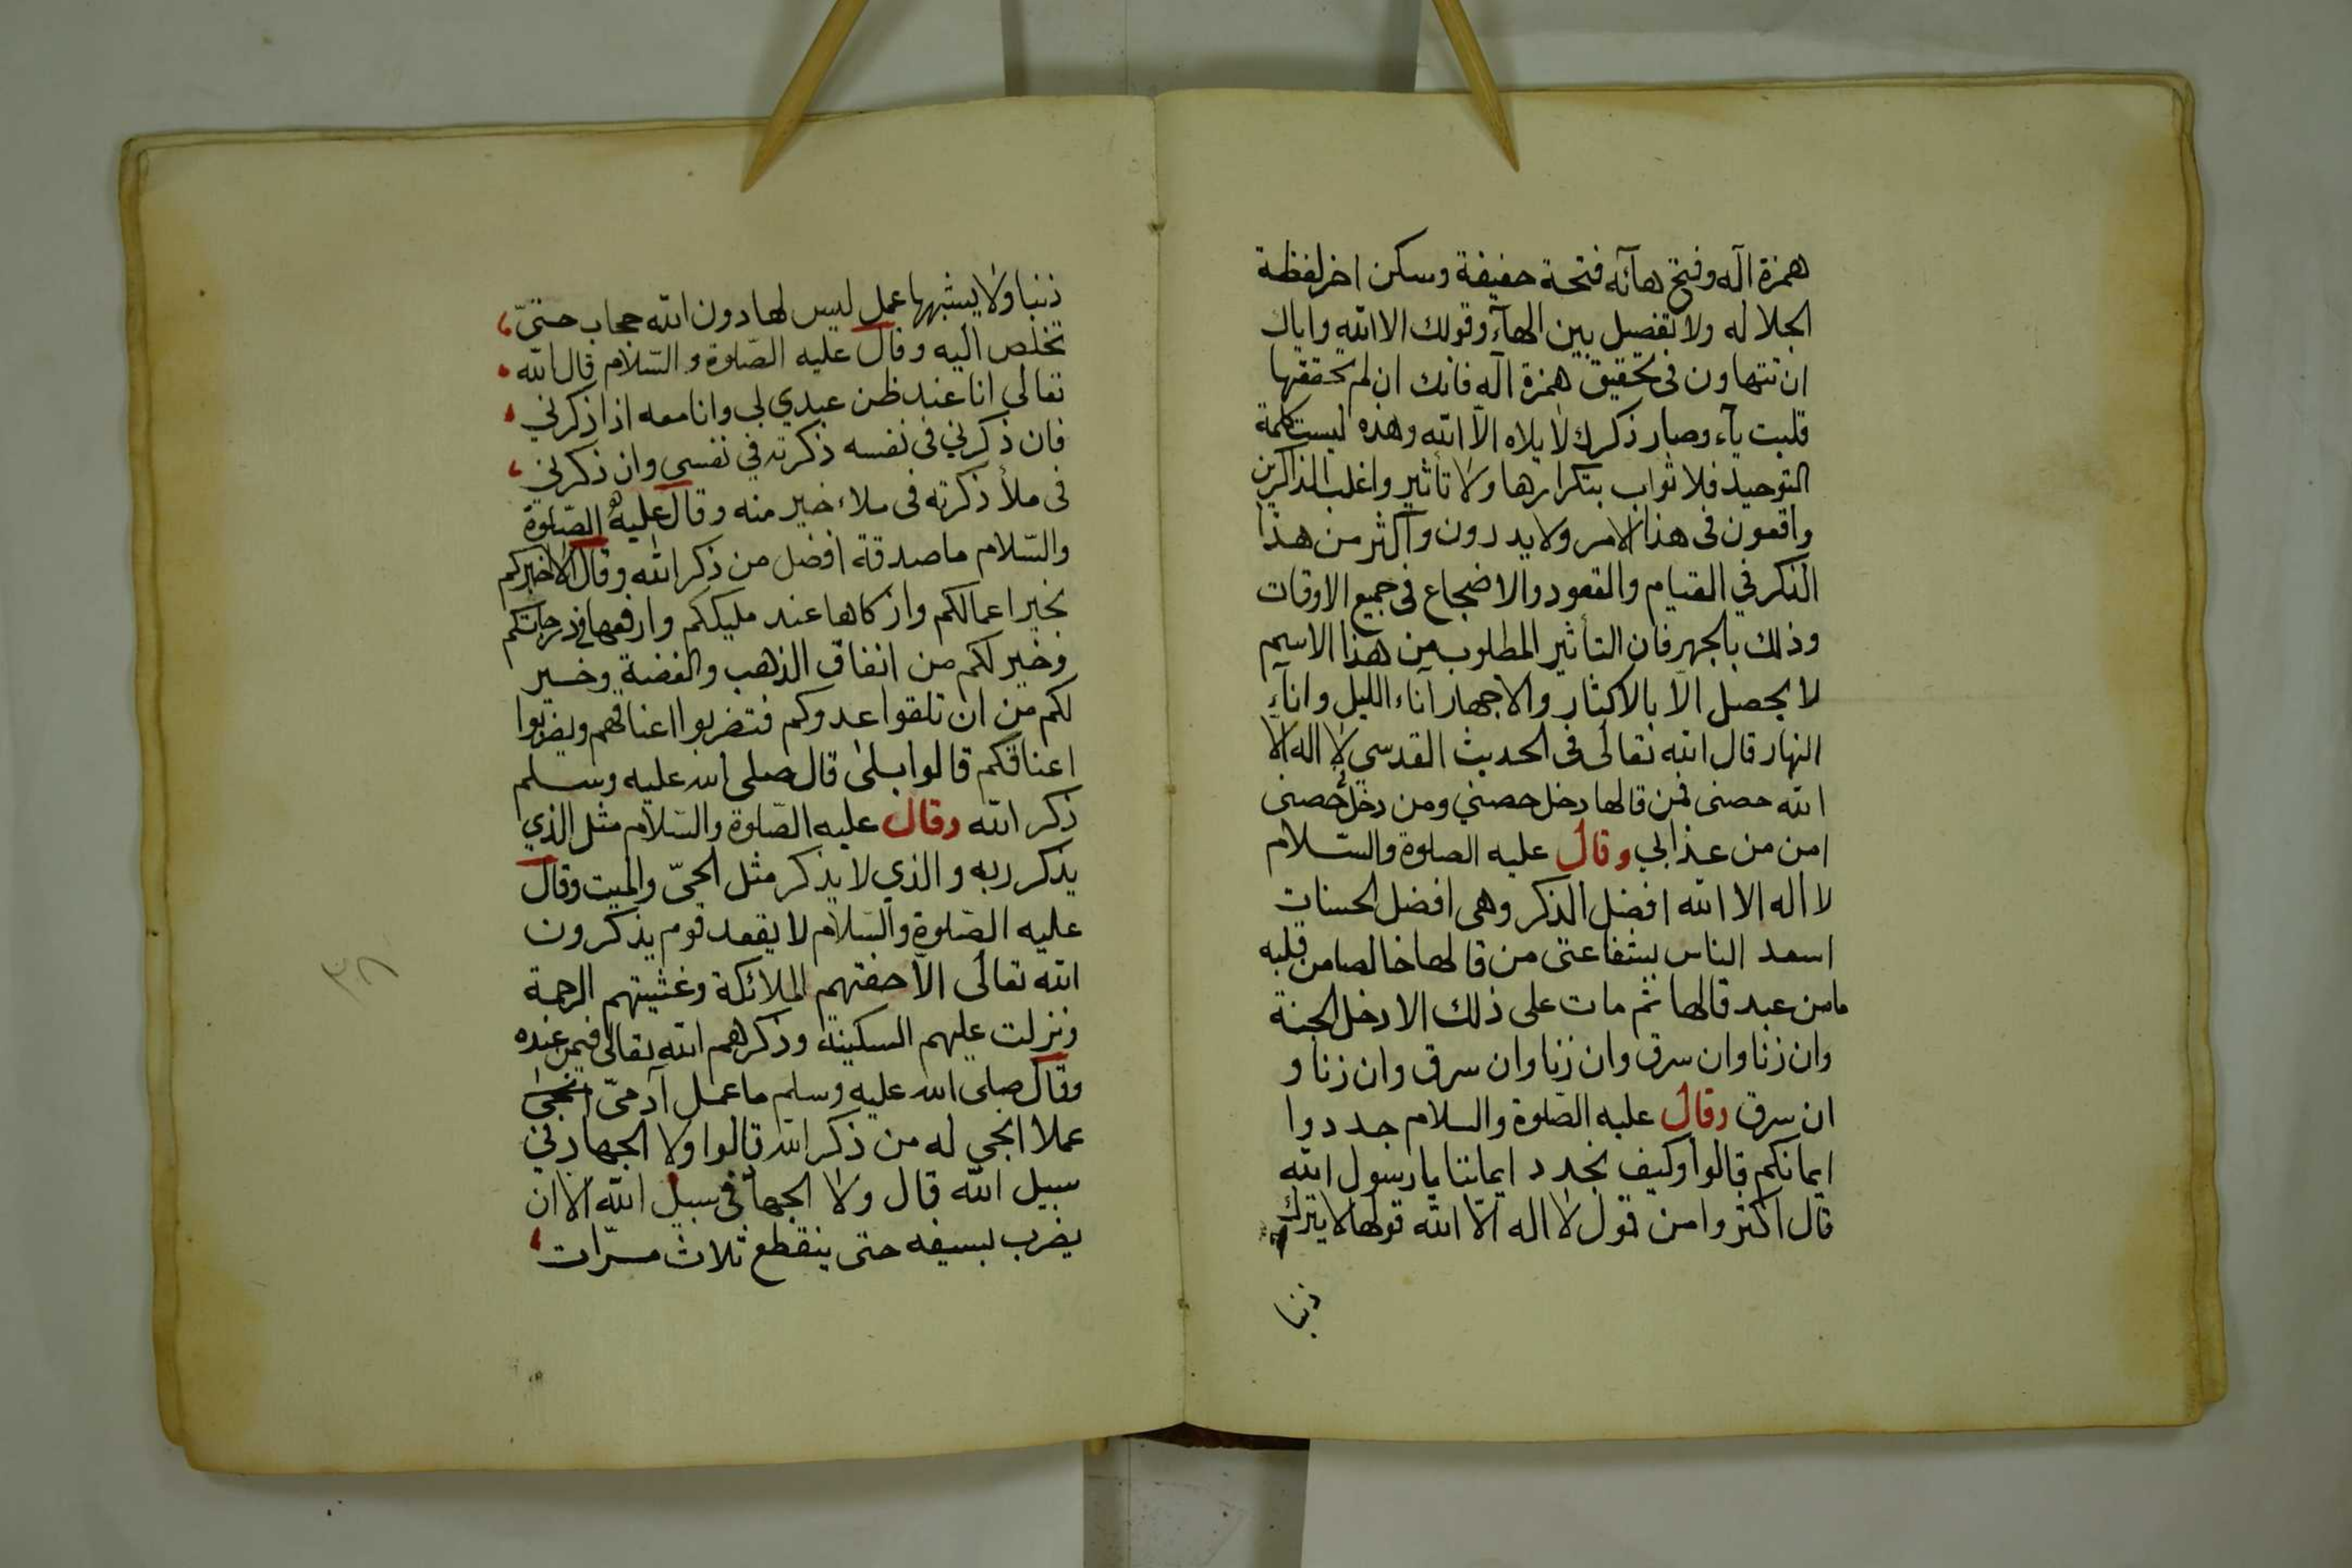 همزة اله وفتح هآئه فتحة خفيفة وسكن اخر لفظة
الجلاله ولا تفصل بين الهآء وقولك الا الله واياك
ان تتهاون فى تحقيق همزة اله فانك ان لم تحققها
قلبت يآء وصار ذكرك لا يلاه الّا الله وهذه ليست كلمة
التوحيد فلا ثواب بتكرارها ولا تأثير واغلب الذاكرين
واقعون فى هذا الامر ولا يدرون واكثر من هذا
الذكر في القيام والقعود والاضجاع فى جميع الاوقات
وذلك بالجهر فان التأثير المطلوب من هذا الاسم
لا يحصل الّا بالاكثار والاجهار آناء الليل وانآء
النهار قال الله تعالى فى الحديث القدسي لا اله الا
الله حصنى فمن قالها دخل حصني ومن دخل حصنى
امن من عذابي وقال عليه الصلوة والسّلام
لا اله الا الله افضل الذكر وهى افضل الحسنات
اسعد الناس بشفاعتى من قالها خالصا من قلبه
مامن عبد قالها ثم مات على ذلك الا دخل الجنة
وان زنا وان سرق وان زنا وان سرق وان زنا و
ان سرق وقال عليه الصّلوة والسلام جددوا
ايمانكم قالوا وكيف نجدد ايماننا يا رسول الله
قال اكثروا من قول لا اله الّا الله قولها لا يترك
ذنبا
ذنبا ولا يشبهها عمل ليس لها دون الله حجاب حتىّ
تخلص اليه وقال عليه الصّلوة والسّلام قال الله
تعالى انا عند ظن عبدي بي وانا معه اذا ذكرني
فان ذكرني فى نفسه ذكرته في نفسي وان ذكرني
فى ملأ ذكرته فى ملاء خير منه وقال عليه الصّلوة
والسّلام ما صدقة افضل من ذكر الله وقال الا اخبركم
بخير اعمالكم وازكاها عند مليككم وارفعها في درجاتكم
وخير لكم من انفاق الذهب والفضة وخير
لكم من ان تلقوا عدوكم فتضربوا اعناقهم ويضربوا
اعناقكم قالوا بلى قال صلى الله عليه وسلم
ذكر الله وقال عليه الصّلوة والسّلام مثل الذي
يذكر ربه والذي لا يذكر مثل الحىّ والميت وقال
عليه الصّلوة والسّلام لا يقعد قوم يذكرون
الله تعالى الّا حفتهم الملائكة وغشيتهم الرحمة
ونزلت عليهم السكينة وذكرهم الله تعالى فيمن عنده
وقال صلى الله عليه وسلم ما عمل آدمىّ
عملا انجى له من ذكر الله قالوا ولا الجهاد في
سبيل الله قال ولا الجهاد فى سبيل الله الا ان
يضرب بسيفه حتى ينقطع ثلاث مرّات
٣٨